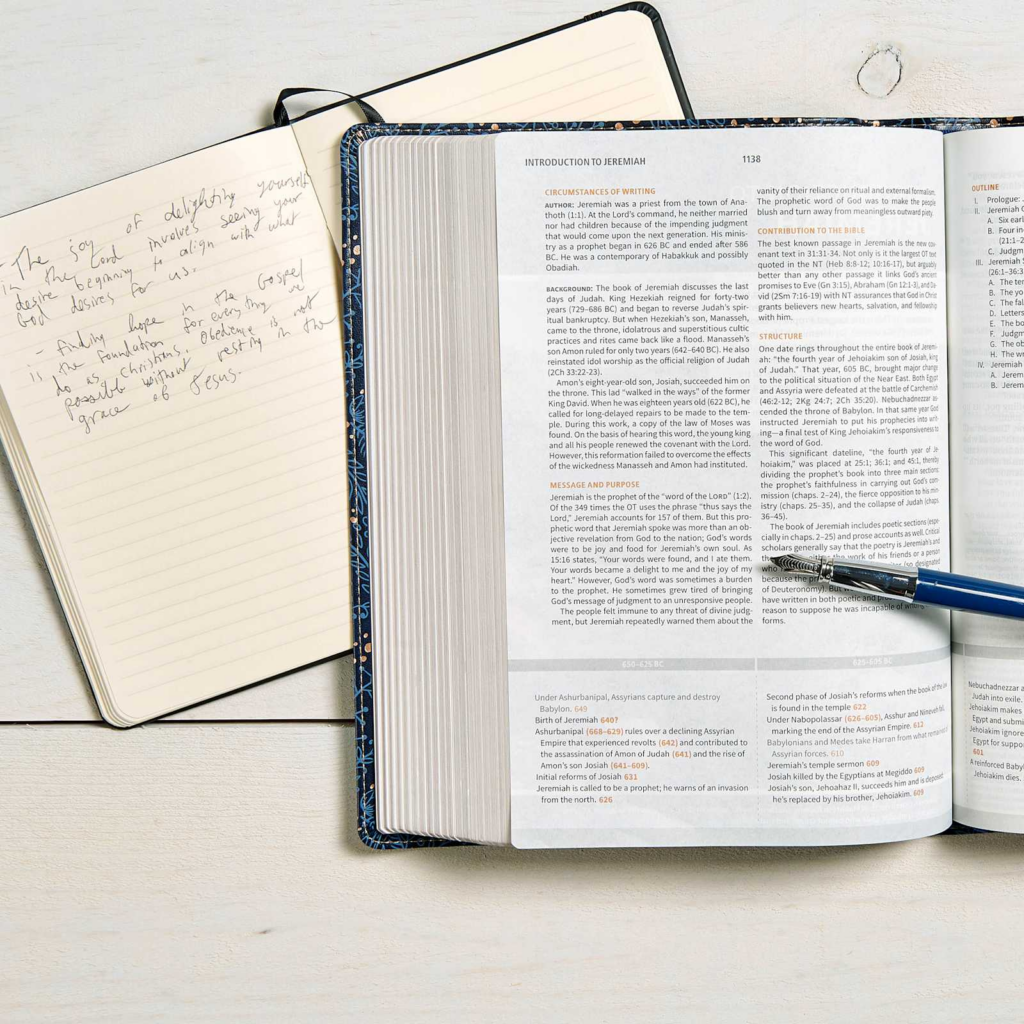 - The joy of delighting yourself
in the Lord involves seeing your
desire beginning to align with what
God desires for us.
- Finding hope in the Gospel
is the foundation for everything we
do as Christians. Obedience is not
possible without resting in the
grace of Jesus.
INTRODUCTION TO JEREMIAH
1138
CIRCUMSTANCES OF WRITING
AUTHOR: Jeremiah was a priest from the town of Ana-
thoth (1:1). At the Lord's command, he neither married
nor had children because of the impending judgment
that would come upon the next generation. His minis-
try as a prophet began in 626 BC and ended after 586
BC. He was a contemporary of Habakkuk and possibly
Obadiah.
BACKGROUND: The book of Jeremiah discusses the last
days of Judah. King Hezekiah reigned for forty-two
years (729–686 BC) and began to reverse Judah's spir-
itual bankruptcy. But when Hezekiah's son, Manasseh,
came to the throne, idolatrous and superstitious cultic
practices and rites came back like a flood. Manasseh's
son Amon ruled for only two years (642–640 BC). He also
reinstated idol worship as the official religion of Judah
(2Ch 33:22-23).
Amon's eight-year-old son, Josiah, succeeded him on
the throne. This lad "walked in the ways" of the former
King David. When he was eighteen years old (622 BC), he
called for long-delayed repairs to be made to the tem-
ple. During this work, a copy of the law of Moses was
found. On the basis of hearing this word, the young king
and all his people renewed the covenant with the Lord.
However, this reformation failed to overcome the effects
of the wickedness Manasseh and Amon had instituted.
MESSAGE AND PURPOSE
Jeremiah is the prophet of the "word of the LORD" (1:2).
Of the 349 times the OT uses the phrase "thus says the
Lord," Jeremiah accounts for 157 of them. But this pro-
phetic word that Jeremiah spoke was more than an ob-
jective revelation from God to the nation; God's words
were to be joy and food for Jeremiah's own soul. As
15:16 states, "Your words were found, and I ate them.
Your words became a delight to me and the joy of my
heart." However, God's word was sometimes a burden
to the prophet. He sometimes grew tired of bringing
God's message of judgment to an unresponsive people.
The people felt immune to any threat of divine judg-
ment, but Jeremiah repeatedly warned them about the
vanity of their reliance on ritual and external formalism.
The prophetic word of God was to make the people
blush and turn away from meaningless outward piety.
CONTRIBUTION TO THE BIBLE
The best known passage in Jeremiah is the new cov-
enant text in 31:31-34. Not only is it the largest OT text
quoted in the NT (Heb 8:8-12; 10:16-17), but arguably
better than any other passage it links God's ancient
promises to Eve (Gn 3:15), Abraham (Gn 12:1-3), and Da-
vid (2Sm 7:16-19) with NT assurances that God in Christ
grants believers new hearts, salvation, and fellowship
with him.
STRUCTURE
One date rings throughout the entire book of Jerem-
iah: "the fourth year of Jehoiakim son of Josiah, king
of Judah." That year, 605 BC, brought major change
to the political situation of the Near East. Both Egypt
and Assyria were defeated at the battle of Carchemish
(46:2-12; 2Kg 24:7; 2Ch 35:20). Nebuchadnezzar as-
cended the throne of Babylon. In that same year God
instructed Jeremiah to put his prophecies into writ-
ing—a final test of King Jehoiakim's responsiveness to
the word of God.
This significant dateline, "the fourth year of Je-
hoiakim," was placed at 25:1; 36:1; and 45:1, thereby
dividing the prophet's book into three main sections
the prophet's faithfulness in carrying out God's com-
mission (chaps. 2–24), the fierce opposition to his min-
istry (chaps. 25–35), and the collapse of Judah (chaps.
36–45).
The book of Jeremiah includes poetic sections (espe-
cially in chaps. 2–25) and prose accounts as well. Critical
scholars generally say that the poetry is Jeremiah's and
the work of his friends or a person
who (so designated
because the
of Deuteronomy). But
have written in both poetic and
reason to suppose he was incapable of
forms.
650–625 BC
625–605 BC
Under Ashurbanipal, Assyrians capture and destroy
Babylon. 649
Birth of Jeremiah 640?
Ashurbanipal (668–629) rules over a declining Assyrian
Empire that experienced revolts (642) and contributed to
the assassination of Amon of Judah (641) and the rise of
Amon's son Josiah (641–609).
Initial reforms of Josiah 631
Jeremiah is called to be a prophet; he warns of an invasion
from the north. 626
Second phase of Josiah's reforms when the book of the law
is found in the temple 622
Under Nabopolassar (626–605), Asshur and Nineveh fall,
marking the end of the Assyrian Empire. 612
Babylonians and Medes take Harran from what remained of
Assyrian forces. 610
Jeremiah's temple sermon 609
Josiah killed by the Egyptians at Megiddo 609
Josiah's son, Jehoahaz II, succeeds him and is deposed
he's replaced by his brother, Jehoiakim. 609
OUTLINE
I. Prologue:
II. Jeremiah
A. Six
B. Four
(21:1–
C. Judgm
III. Jeremiah
(26:1–36:3
A. The
B. The
C. The
D. Letters
E. The
F. Judgm
G. The
H. The
IV. Jeremiah
A. Jerem
B. Jerem
Nebuchadnezzar
Judah into exile.
Jehoiakim makes
Egypt and
Jehoiakim
Egypt for
601
A reinforced
Jehoiakim dies.